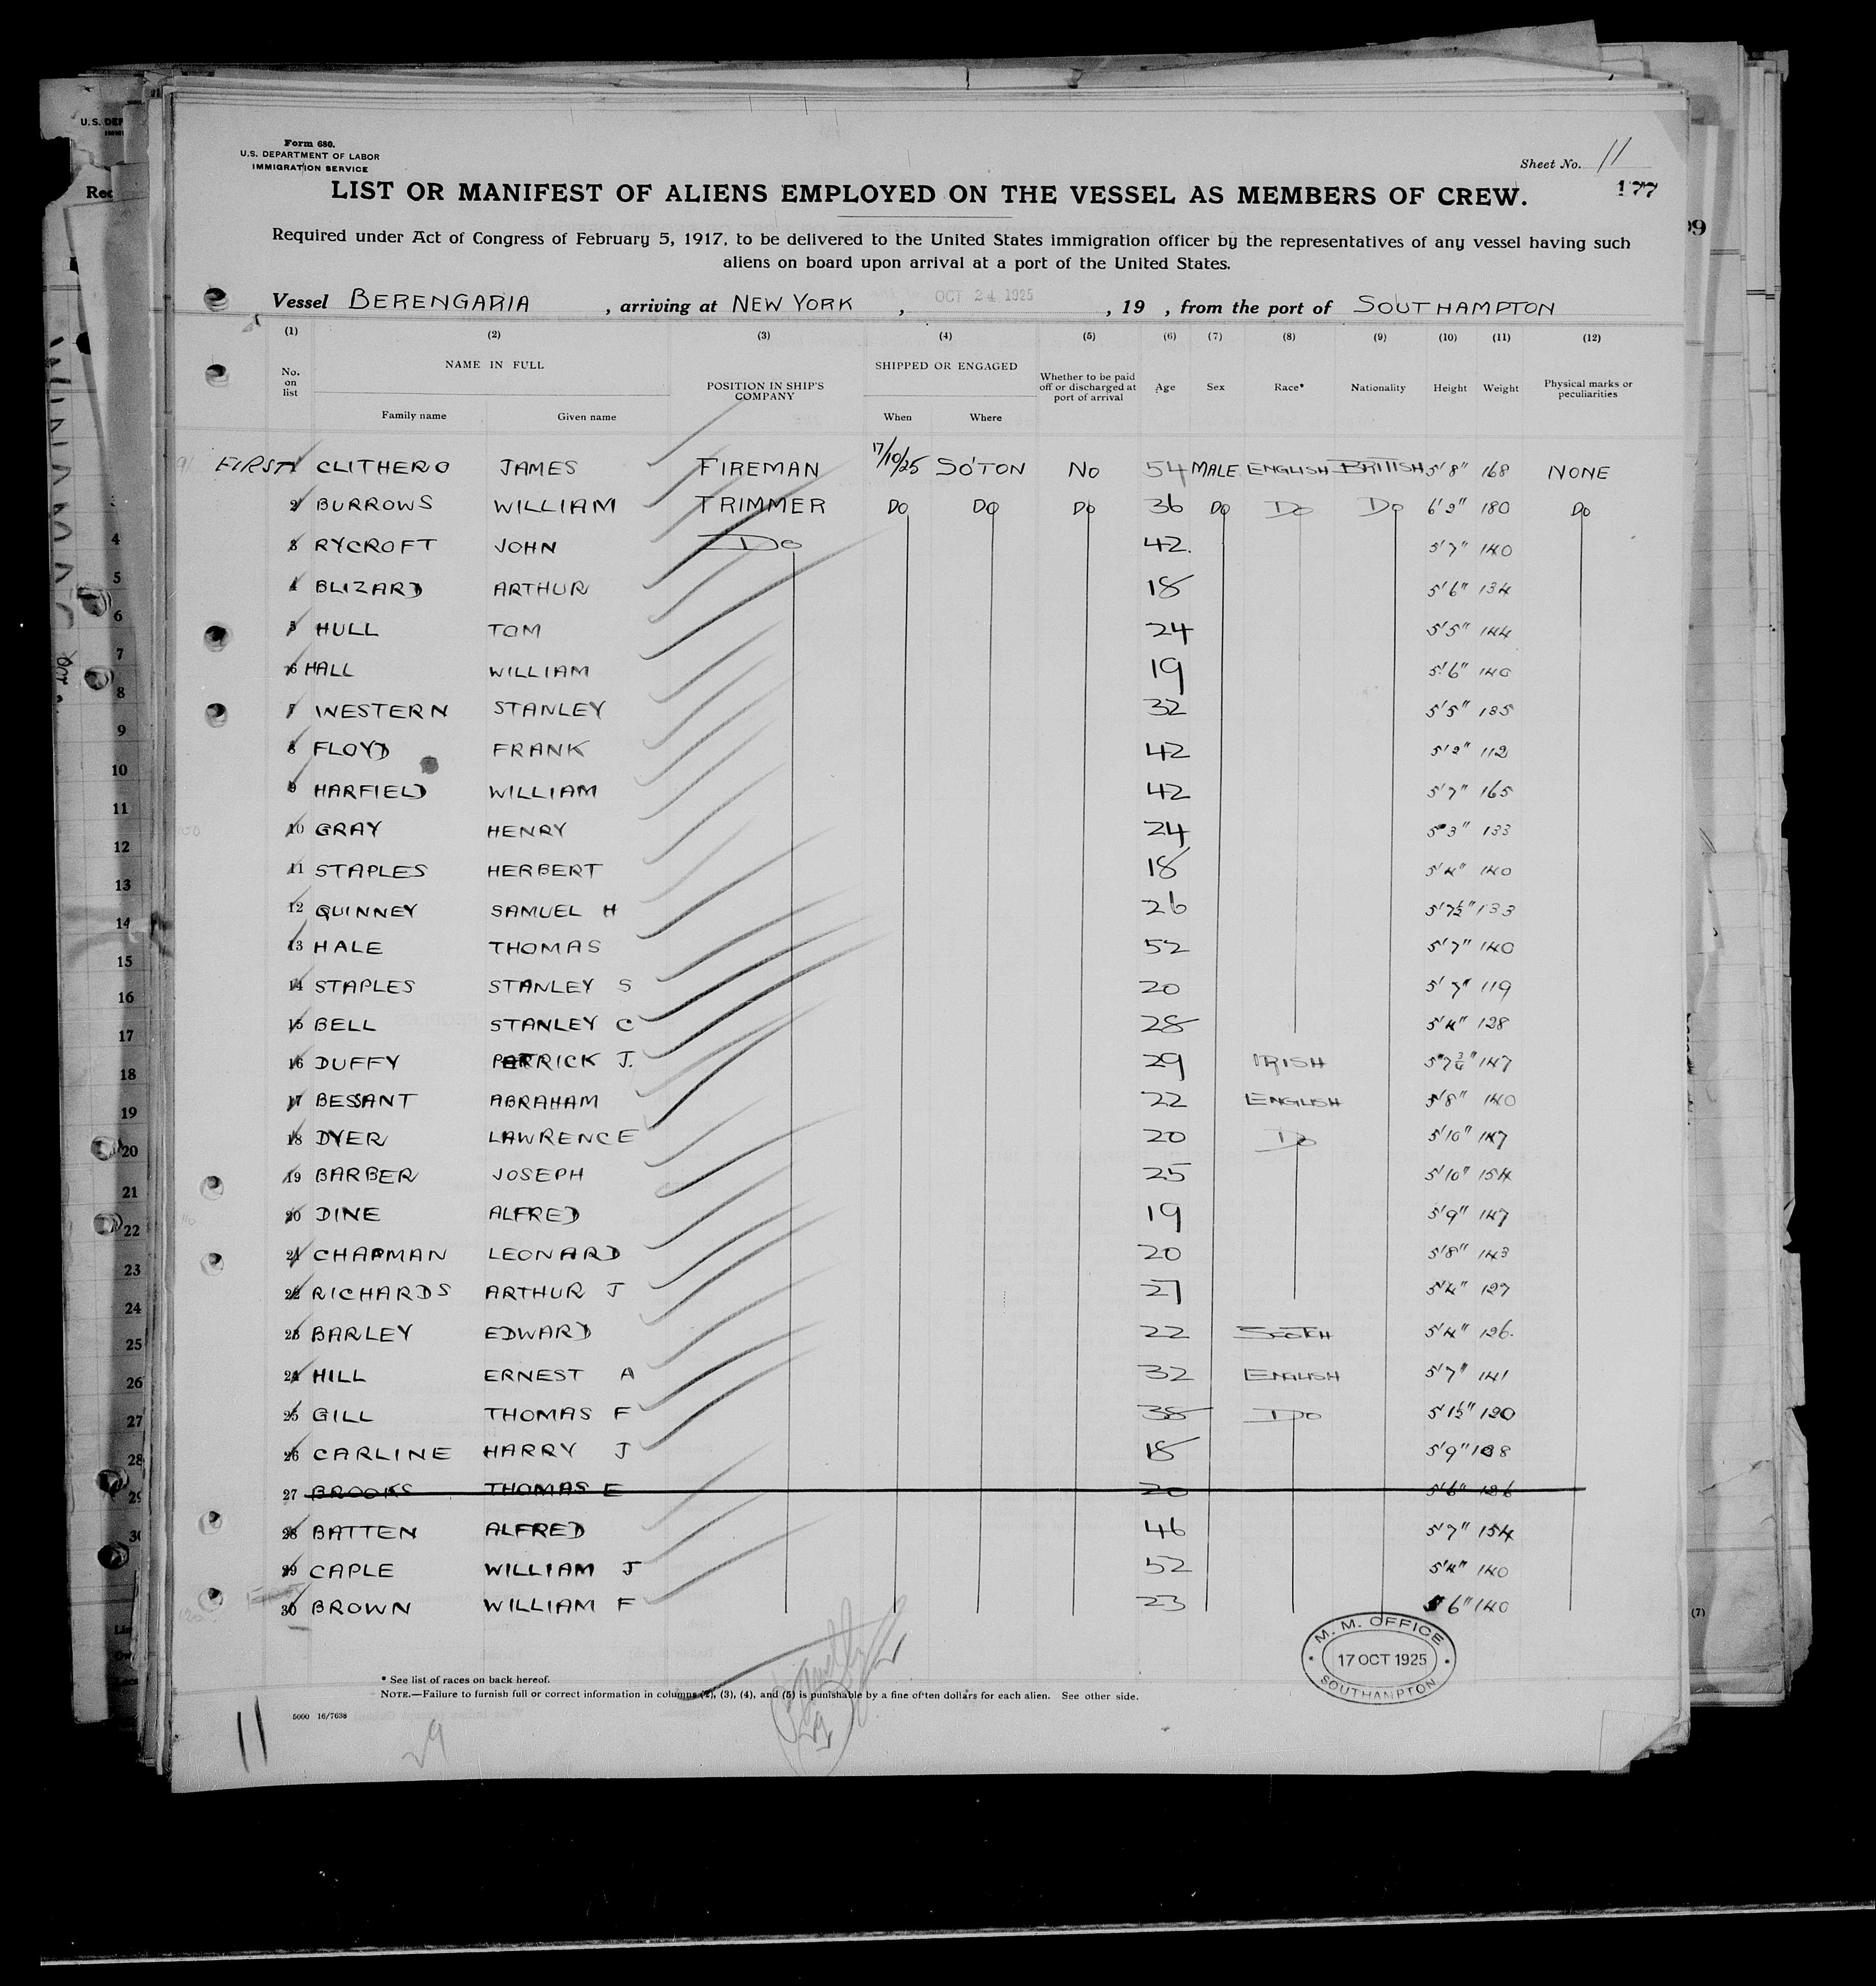 Form 680.
U.S. DEPARTMENT OF LABOR
IMMIGRATION SERVICE
Sheet No. 11
177
LIST OR MANIFEST OF ALIENS EMPLOYED ON THE VESSEL AS MEMBERS OF CREW.
Required under Act of Congress of February 5, 1917, to be delivered to the United States immigration officer by the representatives of any vessel having such
aliens on board upon arrival at a port of the United States.
Vessel BERENGARIA, arriving at NEW YORK, OCT 24 1925, 19 , from the port of SOUTHAMPTON
(1) (2) (3) (4) (5) (6) (7) (8) (9) (10) (11) (12)
No. on list NAME IN FULL Family name Given name POSITION IN SHIP'S COMPANY SHIPPED OR ENGAGED When Where Whether to be paid off or discharged at port of arrival Age Sex Race* Nationality Height Weight Physical marks or peculiarities
FIRST 1 CLITHERO JAMES FIREMAN 17/10/25 SO'TON NO 54 MALE ENGLISH BRITISH 5'8" 168 NONE
2 BURROWS WILLIAM TRIMMER DO DO DO 36 DO DO DO 6'2" 180 DO
3 RYCROFT JOHN DO 42. 5'7" 140
4 BLIZARD ARTHUR 18 5'6" 134
5 HULL TOM 24 5'5" 144
6 HALL WILLIAM 19 5'6" 140
7 WESTERN STANLEY 32 5'5" 135
8 FLOYD FRANK 42 5'2" 112
9 HARFIELD WILLIAM 42 5'7" 165
10 GRAY HENRY 24 5'3" 133
11 STAPLES HERBERT 18 5'4" 140
12 QUINNEY SAMUEL H 26 5'7½" 133
13 HALE THOMAS 52 5'7" 140
14 STAPLES STANLEY S 20 5'7" 119
15 BELL STANLEY C 28 5'4" 128
16 DUFFY PATRICK J. 29 IRISH 5'7¾" 147
17 BESSANT ABRAHAM 22 ENGLISH 5'8" 140
18 DYER LAWRENCE 20 DO 5'10" 147
19 BARBER JOSEPH 25 5'10" 154
20 DINE ALFRED 19 5'9" 147
21 CHAPMAN LEONARD 20 5'8" 143
22 RICHARDS ARTHUR J 27 5'4" 127
23 BARLEY EDWARD 22 SCOTCH 5'4" 126.
24 HILL ERNEST A 32 ENGLISH 5'7" 141
25 GILL THOMAS F 38 DO 5'1½" 120
26 CARLINE HARRY J 18 5'9" 138
27 BROOKS THOMAS E 20 5'6" 126
28 BATTEN ALFRED 46 5'7" 154
29 CAPLE WILLIAM J 52 5'4" 140
30 BROWN WILLIAM F 23 5'6" 140
M. M. OFFICE
17 OCT 1925
SOUTHAMPTON
* See list of races on back hereof.
NOTE.—Failure to furnish full or correct information in columns (2), (3), (4), and (5) is punishable by a fine of ten dollars for each alien. See other side.
5000 16/7638
11
29